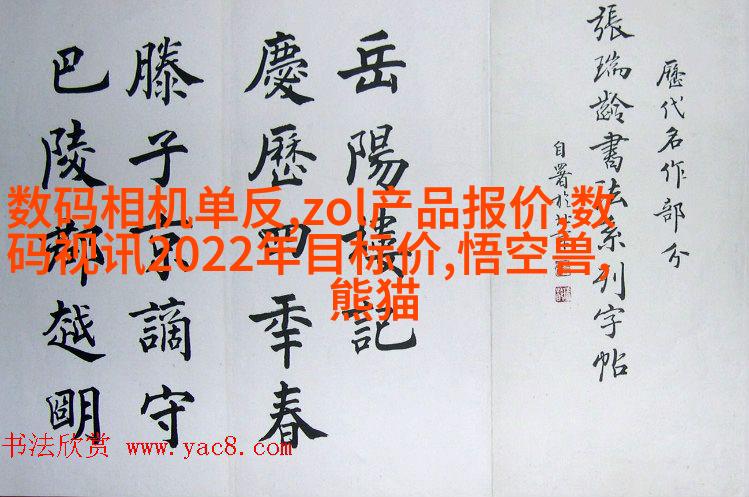 歷代名作部分
張瑞齡書法系列字帖
自署於
岳陽樓記
慶歷四年春
滕子京謫守
巴陵郡越明
数码相机单反,zol产品报价,数
码视讯2022年目标价,悟空兽,
熊猫
书法欣赏 www.yac8.com